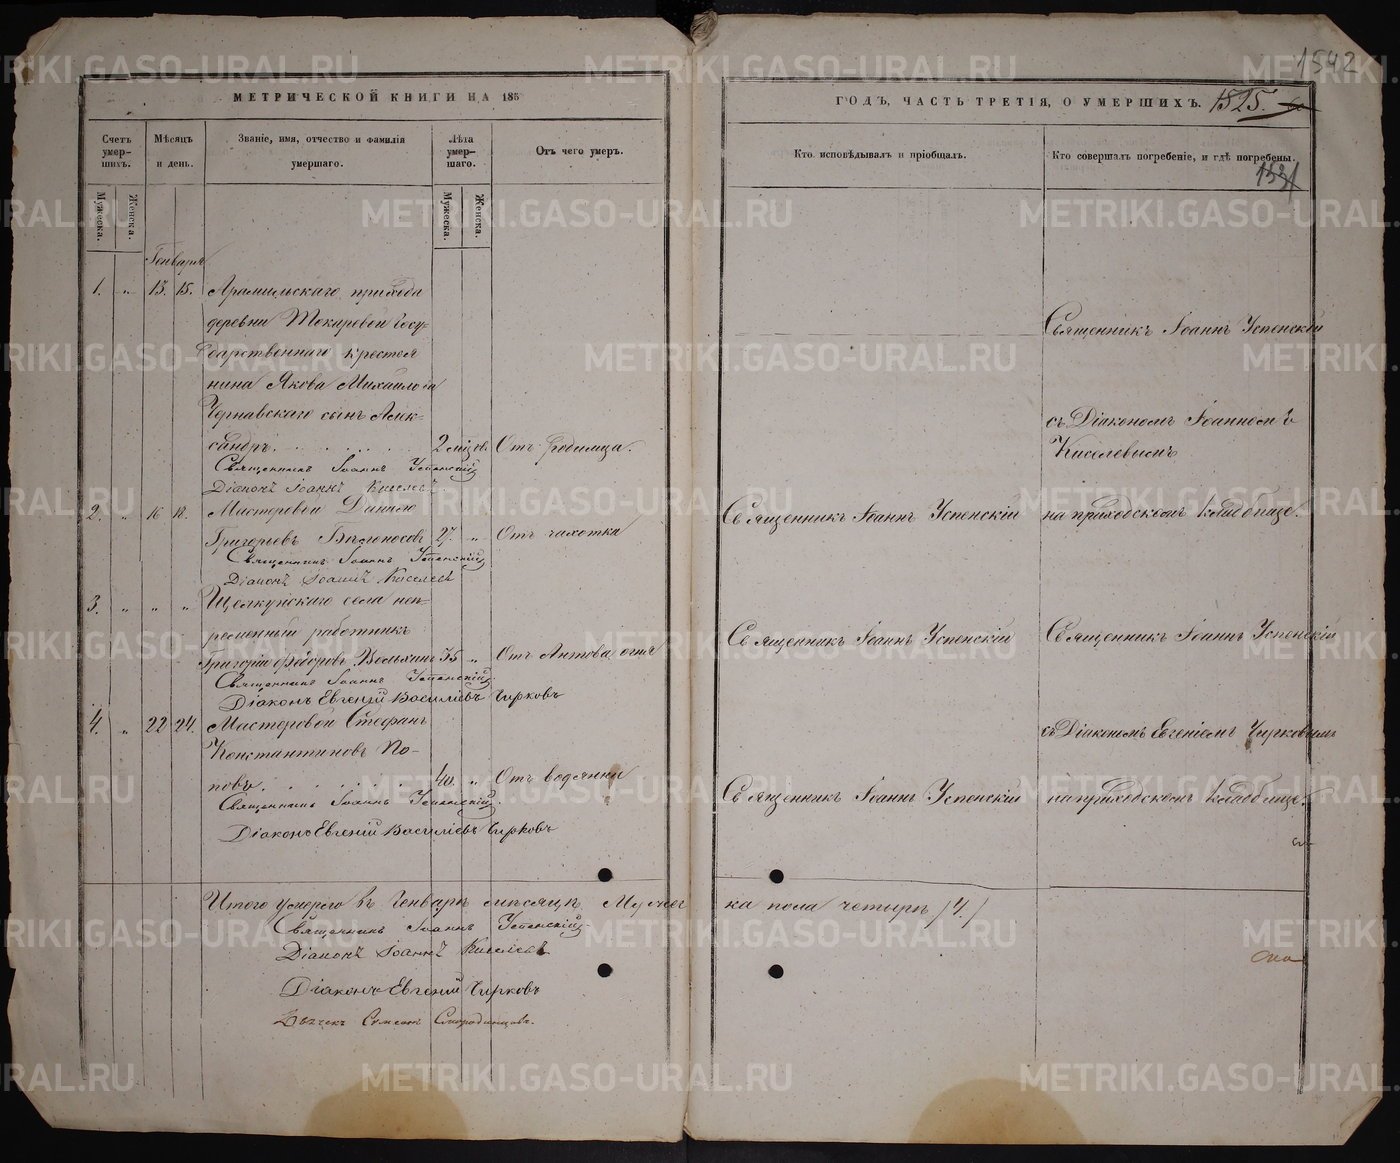 1542
МЕТРИЧЕСКОЙ КНИГИ НА 185
ГОДЪ, ЧАСТЬ ТРЕТІЯ, О УМЕРШИХЪ.
1525.
Счетъ умер-шихъ.
Мужеска.
Женска.
Мѣсяцъ и день.
Званіе, имя, отчество и фамилія умершаго.
Лѣта умер-шаго.
Мужеска.
Женска.
Отъ чего умеръ.
Кто исповѣдывалъ и пріобщалъ.
Кто совершалъ погребеніе, и гдѣ погребены.
1531
Генваря
1. „ 13. 15. Арамильскаго прихода
деревни Токаревой Госу-
дарственнаго крестья
нина Якова Михайлова
Чернавскаго сынъ Алек-
сандръ 2 мѣсяц. Отъ родимца.
Священникъ Іоаннъ Успенскій
Діаконъ Іоаннъ Киселевъ
Священникъ Іоаннъ Успенскій
съ Діакономъ Іоанномъ
Киселевымъ
2. „ 16 18. Мастеровой
Григорьевъ 27. „ Отъ чахотки
Священникъ Іоаннъ Успенскій
Діаконъ Іоаннъ Киселевъ
Священникъ Іоаннъ Успенскій
на приходскомъ кладбище.
3. „ „ „ Щелкунскаго села неп-
ременный работникъ
Григорій Ѳедоровъ 35 „ Отъ Антонова огня
Священникъ Іоаннъ Успенскій
Діаконъ Евгеній Василіевъ Чирковъ
Священникъ Іоаннъ Успенскій
Священникъ Іоаннъ Успенскій
4. „ 22 24. Мастеровой Стефанъ
Константиновъ По-
повъ. 40. „ Отъ водянки
Священникъ Іоаннъ Успенскій
Діаконъ Евгеній Василіевъ Чирковъ
Священникъ Іоаннъ Успенскій
съ Діакономъ Евгеніемъ Чирковымъ
на приходскомъ кладбище.
Итого умерло въ Генварѣ мѣсяцѣ Мужес
ка пола четыре /4/
Священникъ Іоаннъ Успенскій
Діаконъ Іоаннъ Киселевъ
Діаконъ Евгеній Чирковъ
Дьячекъ Симеонъ Смородинцовъ.
METRIKI.GASO-URAL.RU